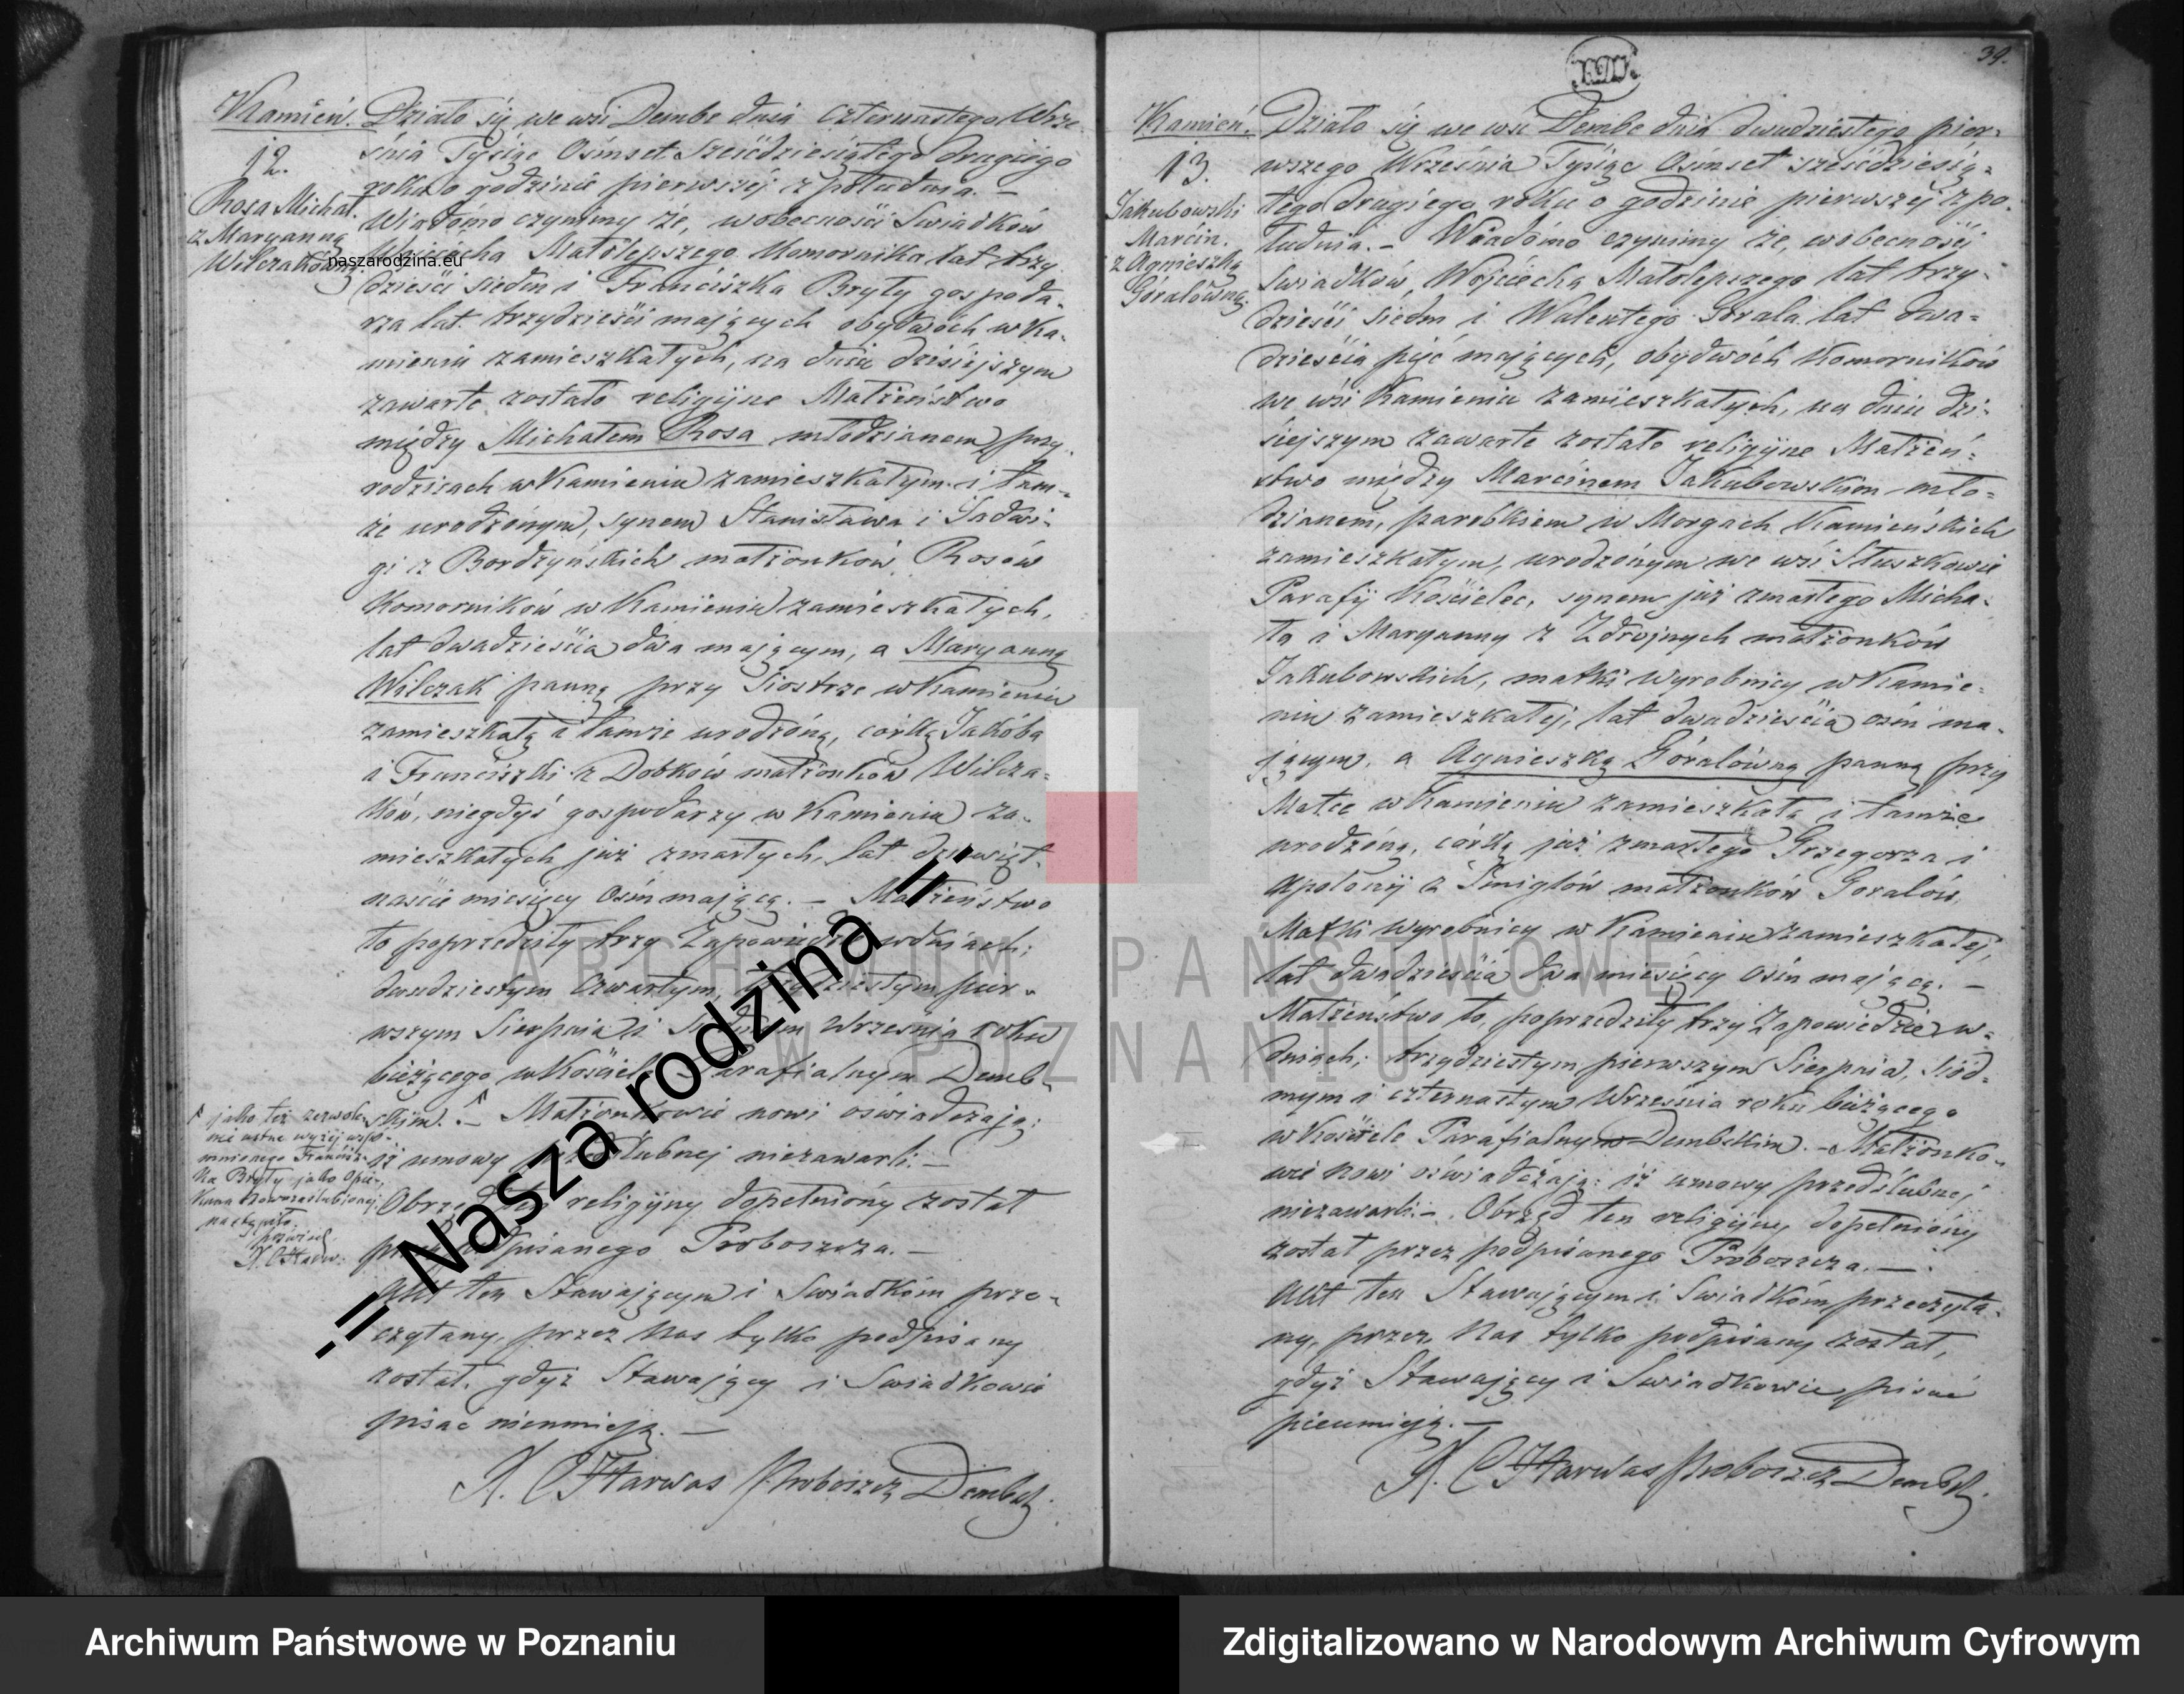 Kamień.
12.
Rosa Michał.
z Maryanną
Wilczakówną.
naszarodzina.eu
Działo się we wsi Dembe dnia czternastego Wrze-
śnia Tysiąc Ośmset Sześćdziesiątego drugiego
roku o godzinie pierwszej z południa. —
Wiadomo czynimy że, wobecności Swiadków
Wojciecha Małolepszego Komornika lat trzy
dzieści siedm i Franciszka Bryły gospoda-
rza lat trzydzieści mających obydwóch w Ka-
mieniu zamieszkałych, na dniu dzisiejszym
zawarte zostało religijne Małżeństwo
między Michałem Rosa młodzianem przy
rodzicach w Kamieniu zamieszkałym i tam-
że urodzonym, synem Stanisława i Jadwi-
gi z Bordzyńskich małżonków Rosów
Komorników w Kamieniu zamieszkałych,
lat dwadzieścia dwa mającym, a Maryanną
Wilczak panną przy Siostrze w Kamieniu
zamieszkałą i tamże urodzoną, córką Jakóba
i Franciszki z Dobków małżonków Wilcza-
ków, niegdyś gospodarzy w Kamieniu za-
mieszkałych już zmarłych, lat dziewięt-
naście miesięcy ośm mającą. — Małżeństwo
to poprzedziły trzy Zapowiedzie w dniach;
dwudziestym czwartym, trzydziestym pier-
wszym Sierpnia i Siódmym Września roku
bieżącego w Kościele Parafialnym Demb-
skim. — Małżonkowie nowi oświadczają:
iż umowy przedślubnej niezawarli. —
Obrzęd ten religijny dopełniony został
przez podpisanego Proboszcza. —
Akt ten Stawającym i Swiadkóm prze-
czytany, przez Nas tylko podpisany
został, gdyż Stawający i Swiadkowie
pisać nieumieją. —
X. C Harwas Proboszcz Dembski.
jako też zezwole-
nie ustne wyżej wspo-
mnionego Francisz-
ka Bryły jako Opie-
kuna Nowozaślubionej
nastąpiło.
-:= Nasza rodzina =:-
39.
Kamień.
13.
Jakubowski
Marcin.
z Agnieszką
Góralówną.
Działo się we wsi Dembe dnia dwudziestego pier-
wszego Września Tysiąc Ośmset sześćdziesią-
tego drugiego roku o godzinie pierwszej z po-
łudnia. — Wiadomo czynimy że, wobecności
Swiadków Wojciecha Małolepszego lat trzy-
dzieści siedm i Walentego Górala lat dwa-
dzieścia pięć mających, obydwóch Komorników
we wsi Kamieniu zamieszkałych, na dniu dzi-
siejszym zawarte zostało religijne Małżeń-
stwo między Marcinem Jakubowskim mło-
dzianem, parobkiem w Morgach Kamieńskich
zamieszkałym, urodzonym we wsi Słuszkowie
Parafij Kościelec, synem już zmarłego Micha-
ła i Maryanny z Zdrojnych małżonków
Jakubowskich, matki wyrobnicy w Kamie-
niu zamieszkałej, lat dwadzieścia ośm ma-
jącym, a Agnieszką Góralówną panną przy
Matce w Kamieniu zamieszkałą i tamże
urodzoną, córką już zmarłego Grzegorza i
Apolonij z Śmigłów małżonków Goralów,
Matki wyrobnicy w Kamieniu zamieszkałej,
lat dwadzieścia dwa miesięcy ośm mającą. —
Małżeństwo to, poprzedziły trzy Zapowiedzie w-
dniach; trzydziestym pierwszym Sierpnia, Siód-
mym i czternastym Września roku bieżącego
w Kościele Parafialnym Dembskim. — Małżonko-
wie nowi oświadczają: iż umowy przedślubnej
niezawarli. — Obrzęd ten religijny dopełniony
został przez podpisanego Proboszcza. —
Akt ten Stawającym i Swiadkóm przeczyta-
ny, przez Nas tylko podpisany został,
gdyż Stawający i Swiadkowie pisać
nieumieją. —
X. C Harwas Proboszcz Dembski.
ARCHIWUM PAŃSTWOWE
W POZNANIU
Archiwum Państwowe w Poznaniu
Zdigitalizowano w Narodowym Archiwum Cyfrowym